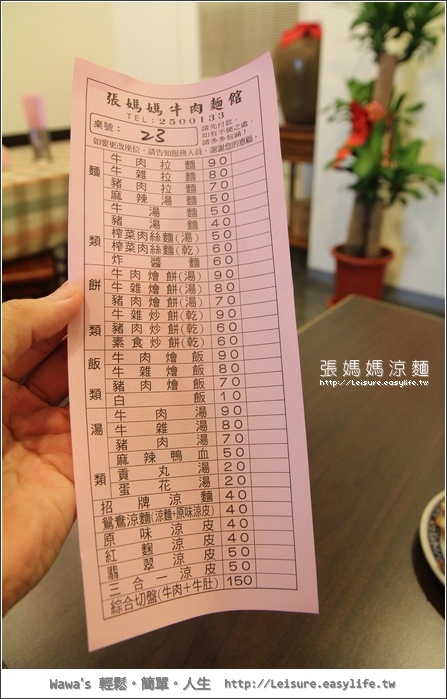 張媽媽牛肉麵館
TEL:2500133
桌號： 23
請先付款，
如有不便之處，
請多多包涵！
如要更改座位，請告知服務人員，謝謝您的惠顧。
麵類
牛肉拉麵 90
牛雜拉麵 80
豬肉拉麵 70
麻辣湯麵 50
牛湯麵 50
豬湯麵 40
榨菜肉絲麵(湯) 50
榨菜肉絲麵(乾) 60
炸醬麵 60
餅類
牛肉燴餅(湯) 90
牛雜燴餅(湯) 80
豬肉燴餅(湯) 70
牛雜炒餅(乾) 90
豬肉炒餅(乾) 60
素食炒餅(乾) 60
飯類
牛肉燴飯 90
牛雜燴飯 80
豬肉燴飯 70
白飯 10
湯類
牛肉湯 90
牛雜湯 80
豬肉湯 70
麻辣鴨血 50
貢丸湯 20
蛋花湯 20
招牌涼麵 40
鴛鴦涼麵(涼麵+原味涼皮) 40
原味涼皮 40
紅麴涼皮 40
翡翠涼皮 50
三合一涼皮 50
綜合切盤(牛肉+牛肚) 150
張媽媽涼麵
http://Leisure.easylife.tw
Wawa's 輕鬆。簡單。人生 http://Leisure.easylife.tw